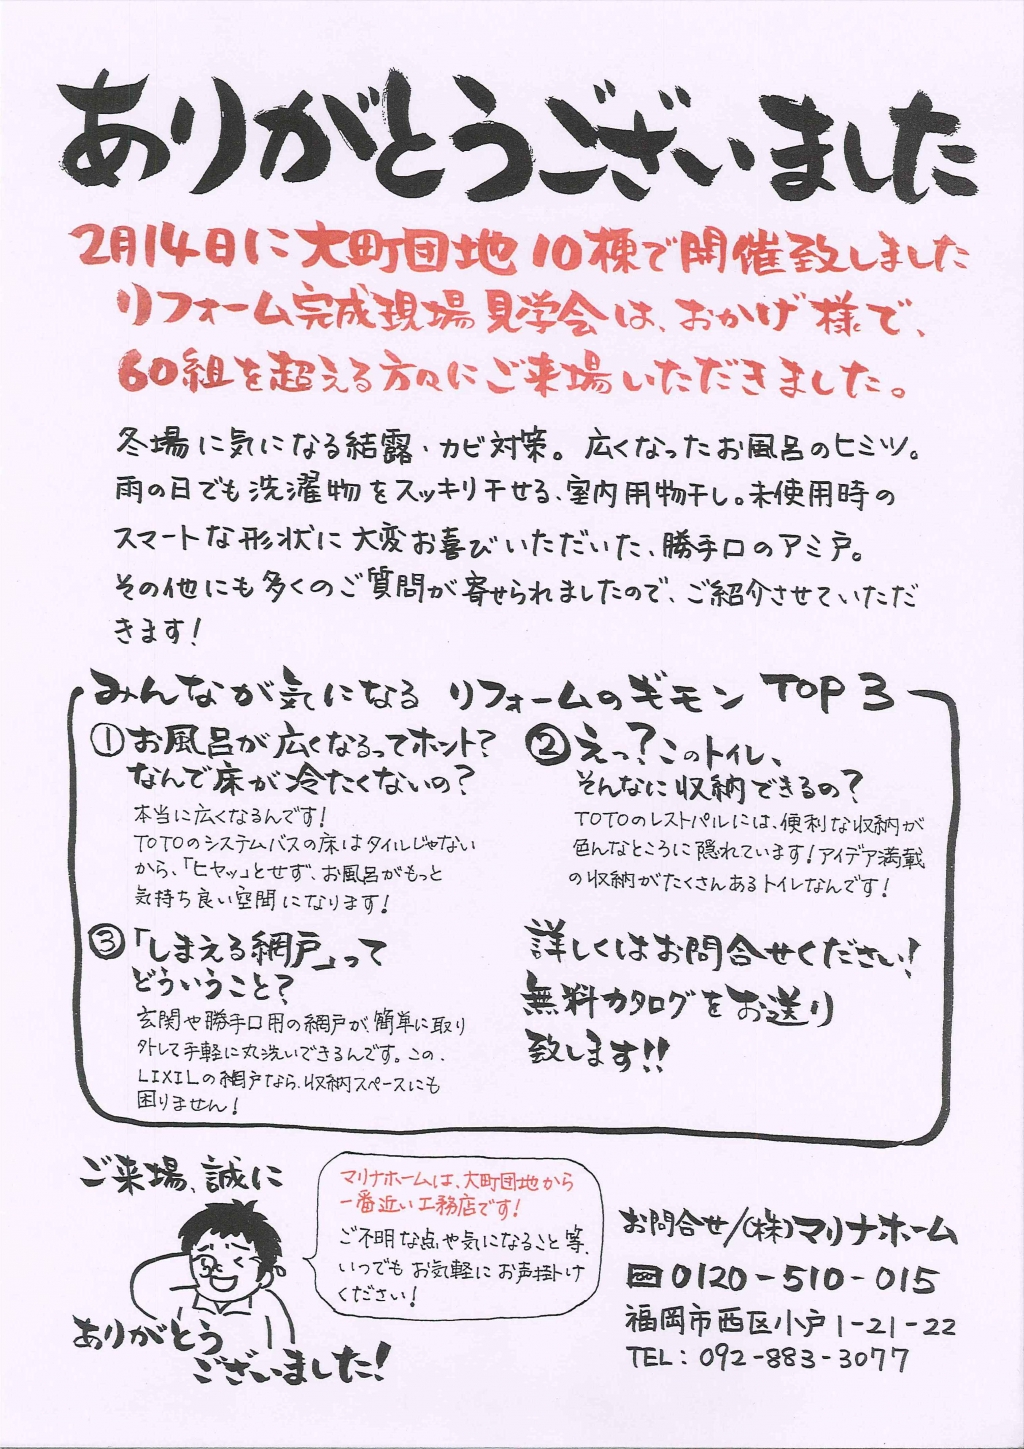 ありがとうございました
2月14日に大町団地10棟で開催致しました
リフォーム完成現場見学会は、おかげ様で、
60組を超える方々にご来場いただきました。
冬場に気になる結露・カビ対策。広くなったお風呂のヒミツ。
雨の日でも洗濯物をスッキリ干せる、室内用物干し。未使用時の
スマートな形状に大変お喜びいただいた、勝手口のアミ戸。
その他にも多くのご質問が寄せられましたので、ご紹介させていただ
きます!
みんなが気になる リフォームのギモン TOP3
①お風呂が広くなるってホント?
なんで床が冷たくないの?
本当に広くなるんです!
TOTOのシステムバスの床はタイルじゃない
から、「ヒヤッ」とせず、お風呂がもっと
気持ち良い空間になります!
②えっ?このトイレ、
そんなに収納できるの?
TOTOのレストパルには、便利な収納が
色んなところに隠れています!アイデア満載
の収納がたくさんあるトイレなんです!
③「しまえる網戸」って
どういうこと?
玄関や勝手口用の網戸が、簡単に取り
外して手軽に丸洗いできるんです。この、
LIXILの網戸なら、収納スペースにも
困りません!
詳しくはお問合せください!
無料カタログをお送り
致します!!
ご来場、誠に
ありがとう
ございました!
マリナホームは、大町団地から
一番近い工務店です!
ご不明な点や気になること等、
いつでもお気軽にお声掛け
ください!
お問合せ/(株)マリナホーム
0120-510-015
福岡市西区小戸1-21-22
TEL:092-883-3077